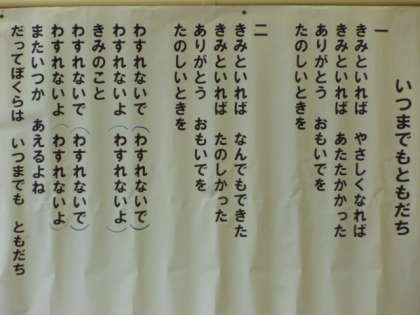 いつまでもともだち
一
きみといれば　やさしくなれば
きみといれば　あたたかかった
ありがとう　おもいでを
たのしいときを
二
きみといれば　なんでもできた
きみといれば　たのしかった
ありがとう　おもいでを
たのしいときを
わすれないで（わすれないで）
わすれないよ（わすれないよ）
きみのこと
わすれないで（わすれないで）
わすれないよ（わすれないよ）
またいつか　あえるよね
だってぼくらは　いつまでも　ともだち